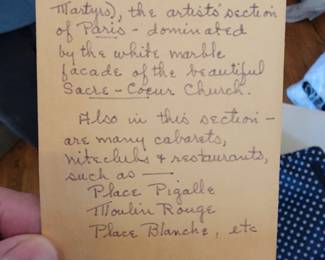 Martyrs), the artists' section
of Paris - dominated
by the white marble
facade of the beautiful
Sacre-Coeur Church.
Also in this section -
are many cabarets,
niteclubs & restaurants,
such as —
Place Pigalle
Moulin Rouge
Place Blanche, etc